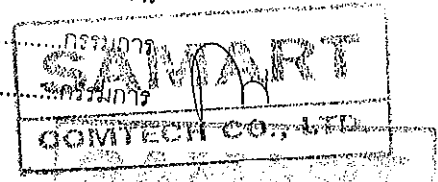 ........กรรมการ
SAMART
........กรรมการ
COMTECH CO., LTD.